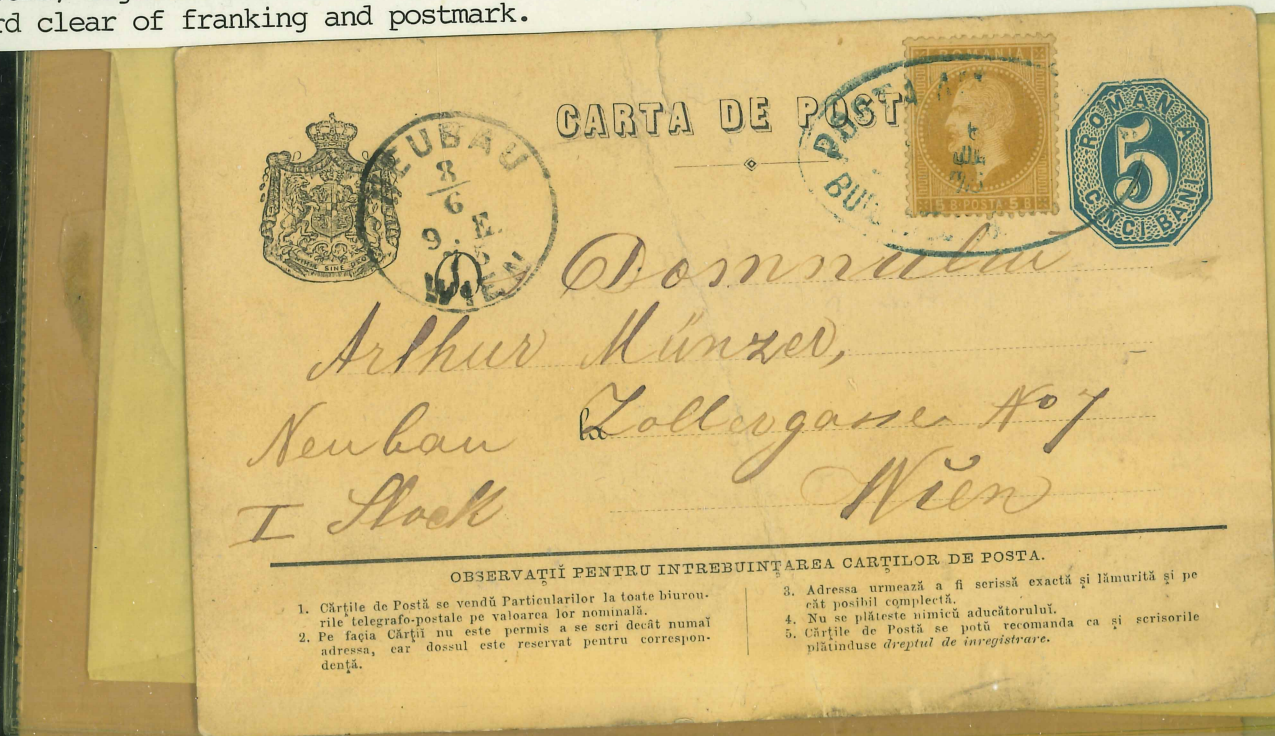 rd clear of franking and postmark.
CARTA DE POST
ROMANIA
5 B. POSTA 5 B.
ROMANIA
5
CINCI BANI
NEUBAU
8
6
9 . E.
WIEN
NIHIL SINE DEO
Domnului
Arthur Münzer,
Neubau la Zollergasse No 7
I Stock Wien
OBSERVAȚIĬ PENTRU INTREBUINȚAREA CARȚILOR DE POSTA.
1. Cărțile de Postă se vendŭ Particularilor la toate biurou-
rile telegrafo-postale pe valoarea lor nominală.
2. Pe facia Cărțiĭ nu este permis a se scri decât numaĭ
adressa, ear dossul este reservat pentru correspon-
dență.
3. Adressa urmează a fi scrissă exactă și lămurită și pe
cât posibil complectă.
4. Nu se plăteste nimicŭ aducătoruluĭ.
5. Cărțile de Postă se potŭ recomanda ca și scrisorile
plătinduse dreptul de inregistrare.